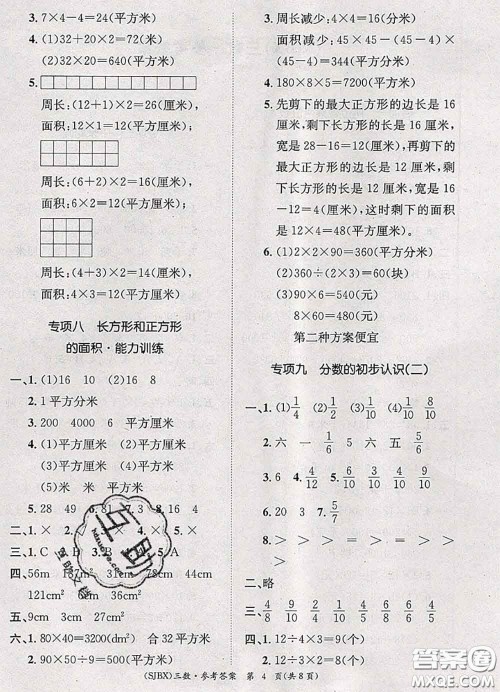 3. 7×7-5×5=24(平方厘米)
4. (1)32+20×2=72(米)
(2)32×20=640(平方米)
5.
周长:(12+1)×2=26(厘米),
面积:12×1=12(平方厘米);
周长:(6+2)×2=16(厘米),
面积:6×2=12(平方厘米);
周长:(4+3)×2=14(厘米),
面积:4×3=12(平方厘米)
专项八 长方形和正方形
的面积·能力训练
一、1. (1)16 10 (2)16 8
2. 1平方分米
3. 200 4000 6 9
4. (1)平方厘米 (2)平方厘米
(3)平方分米 (4)平方米
(5)米 米 平方米
5. 28 49 6. 81 7. 3 8. 16 4
二、1. × 2. × 4. × 5. ×
三、1. C 2. B 5. A
四、56m 31cm 78cm 44cm
121cm² 36m²
五、9cm 3cm 27cm²
六、1. 80×40=3200(dm²) 合32平方米
2. 90×50÷9=500(块)
3. 周长减少:4×4=16(分米)
面积减少:45×45-(45-4)×
(45-4)=344(平方分米)
4. 180×8×5=7200(平方米)
5. 先剪下的最大正方形的边长是16
厘米,剩下长方形的长是16厘米,
宽是28-16=12(厘米),再剪下的
最大正方形的边长是12厘米,剩
下长方形的长是12厘米,宽是16
-12=4(厘米),这时剩下的面积
是12×4=48(平方厘米)
6. (1)2×2×90=360(平方分米)
(2)360÷(2×3)=60(块)
(3)60×9=540(元)
8×60=480(元)
第二种方案便宜
专项九 分数的初步认识(二)
一、1. (1)1/4 2/4 (2)1/10 4/10 1/10 8/10
2. 六 一 1/6 六 五 5/6
3. 1/6 2/6 4. 1/5 2/5 3/5 4/5
5. 9/10 6. 20 10 7. 5/7
8. > > < > = <
> > < =
二、略
三、4/8 4/9 5/10 2/4 2/6 3/9
四、1. 12÷4×3=9(个)
2. 12÷3×2=8(个)
(SJBX)三数·参考答案 第 4 页(共8页)
互助
互助文档
答案圈
MXQE.COM